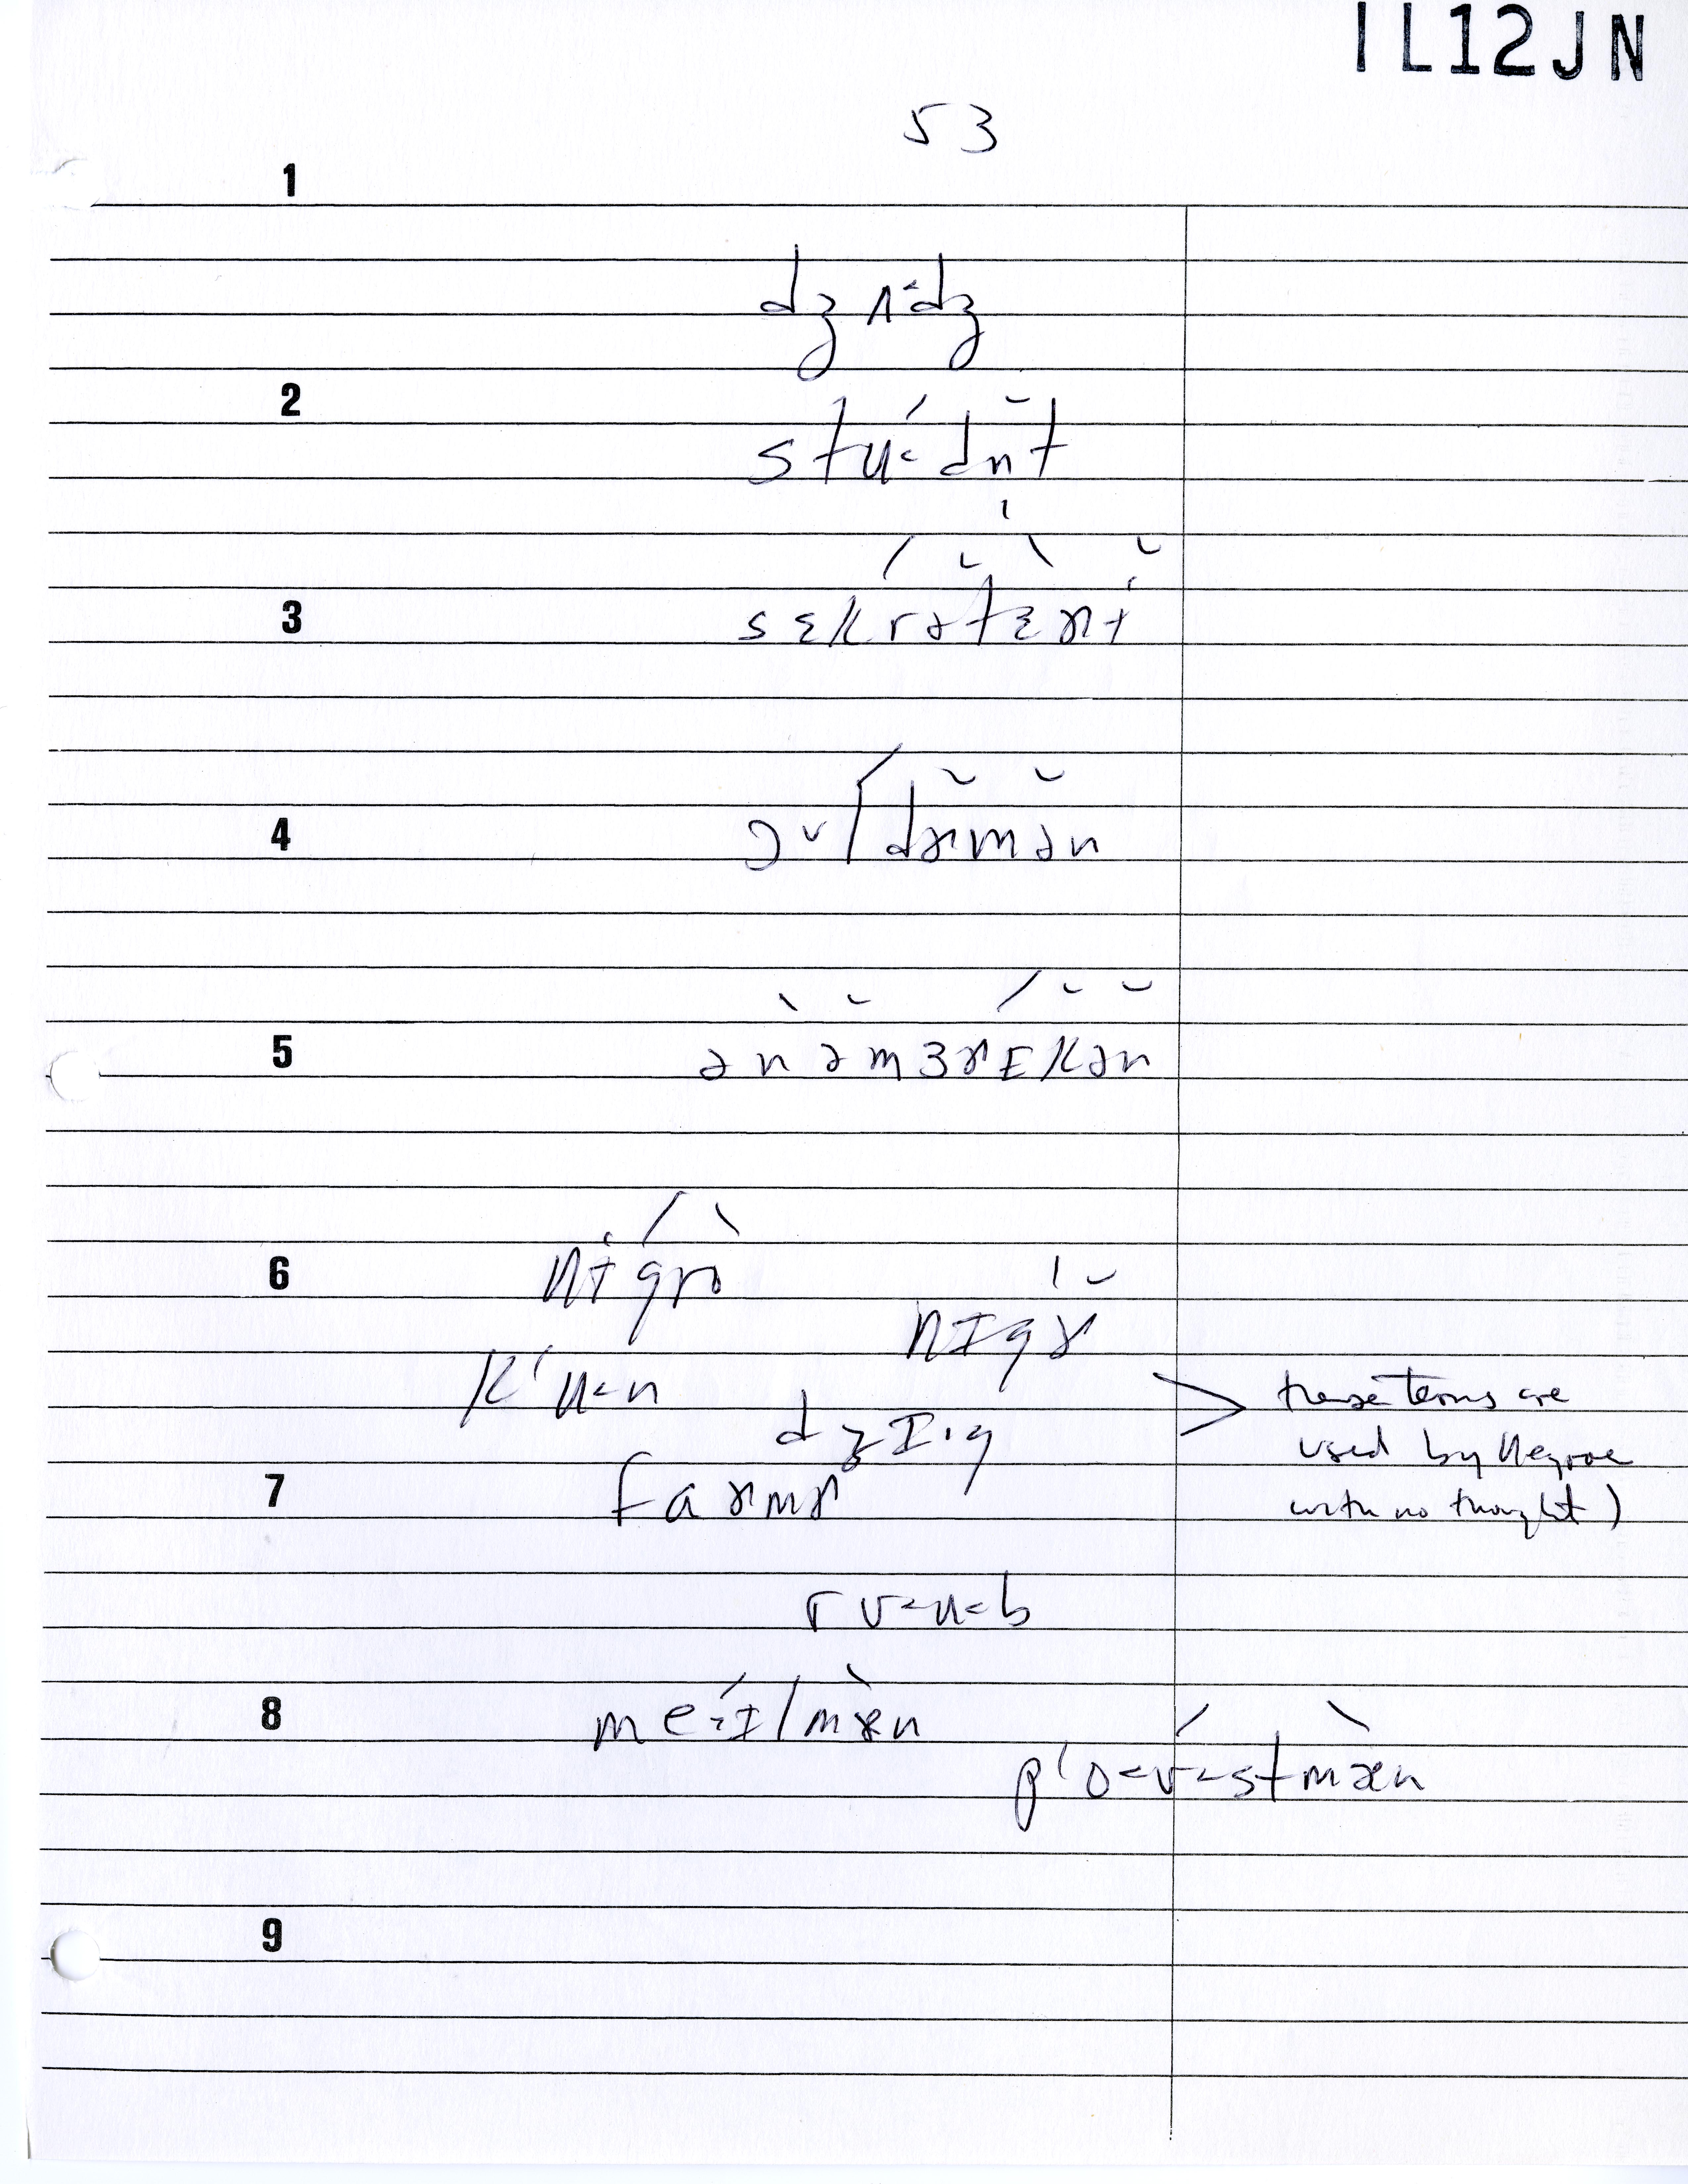 IL12JN
53
1
dʒʌ˂dʒ
2
stu˂dn̆t
3
sɛkrətɛɚɨ
4
ɔʊldɚmən
5
ənəmɜɚɪkən
6
nɨgro
nɪgɚ
kʻu˂n
dʒɪ·g
> these terms are
used by Negroe
with no thought)
7
faɚmɚ
rʊ˂u˂b
8
me·ɪlmæn
pʻo˂ʊ˂stmæn
9